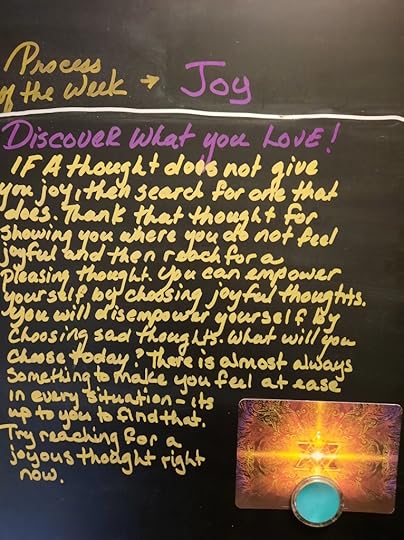 Process
of the Week → Joy
Discover what you Love!
If A thought does not give
you joy, then search for one that
does. Thank that thought for
showing you where you do not feel
joyful and then reach for a
pleasing thought. You can empower
yourself by choosing joyful thoughts.
You will disempower yourself by
choosing sad thoughts. What will you
choose today? There is almost always
something to make you feel at ease
in every situation - its
up to you to find that.
Try reaching for a
joyous thought right
now.